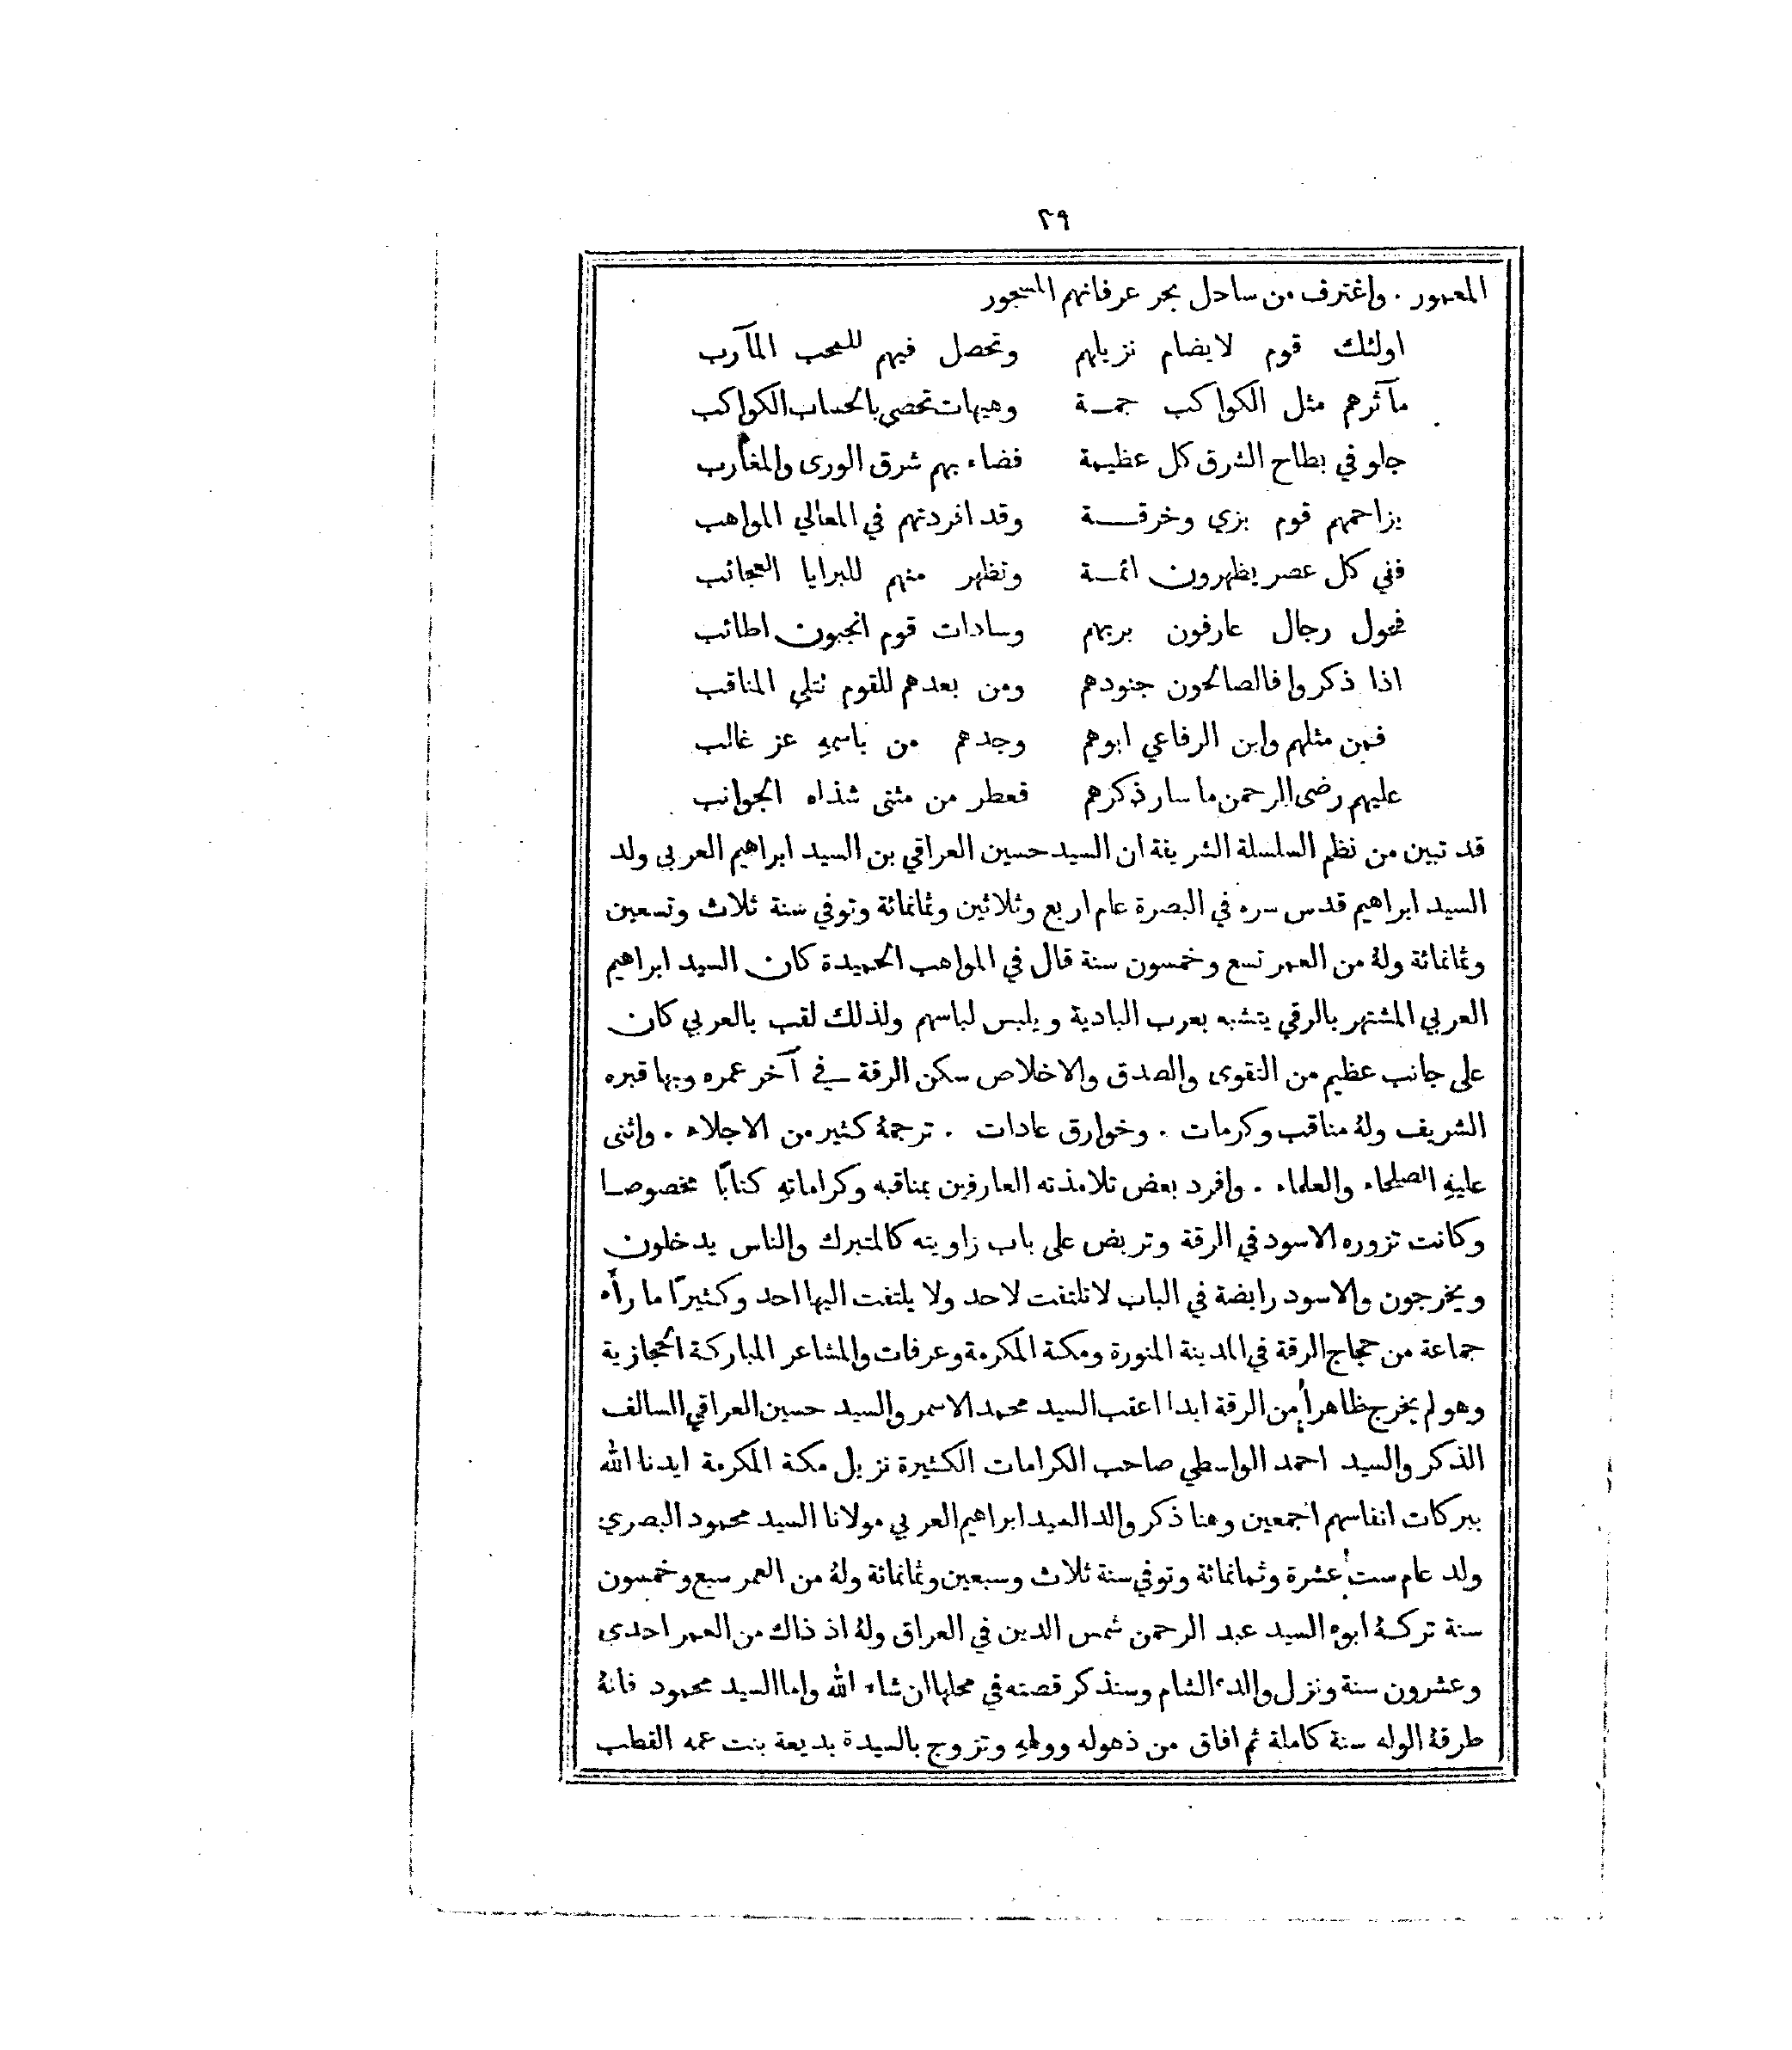 ٢٩
المعمور . واغترف من ساحل بحر عرفانهم المسجور
اولئك قوم لا يضام نزيلهم وتحصل فيهم للمحب المآرب
مآثرهم مثل الكواكب جمة وهيهات تحصى بالحساب الكواكب
جلو في بطاح الشرق كل عظيمة فضاء بهم شرق الورى والمغارب
يزاحمهم قوم بزي وخرقة وقد افردتهم في المعالي المواهب
ففي كل عصر يظهرون ائمة وتظهر منهم للبرايا العجائب
فحول رجال عارفون بربهم وسادات قوم انجبون اطائب
اذا ذكروا فالصالحون جنودهم ومن بعدهم للقوم تتلى المناقب
فمن مثلهم وابن الرفاعي ابوهم وجدهم من باسمهِ عز غالب
عليهم رضى الرحمن ما سار ذكرهم فعطر من مثنى شذاه الجوانب
قد تبين من نظم السلسلة الشريفة ان السيد حسين العراقي بن السيد ابراهيم العربي ولد
السيد ابراهيم قدس سره في البصرة عام اربع وثلاثين وثمانمائة وتوفي سنة ثلاث وتسعين
وثمانمائة ولهُ من العمر تسع وخمسون سنة قال في المواهب الحميدة كان السيد ابراهيم
العربي المشتهر بالرقي يتشبه بعرب البادية ويلبس لباسهم ولذلك لقب بالعربي كان
على جانب عظيم من التقوى والصدق والاخلاص سكن الرقة في آخر عمره وبها قبره
الشريف ولهُ مناقب وكرمات . وخوارق عادات . ترجمهُ كثير من الاجلاء . واثنى
عليهِ الصلحاء والعلماء . وافرد بعض تلامذته العارفين بمناقبه وكراماتهِ كتابًا مخصوصا
وكانت تزوره الاسود في الرقة وتربض على باب زاويته كالمتبرك والناس يدخلون
ويخرجون والاسود رابضة في الباب لا تلتفت لاحد ولا يلتفت اليها احد وكثيرًا ما رأه
جماعة من حجاج الرقة في المدينة المنورة ومكة المكرمة وعرفات والمشاعر المباركة الحجازية
وهو لم يخرج ظاهرا من الرقة ابدا اعقب السيد محمد الاسمر والسيد حسين العراقي السالف
الذكر والسيد احمد الواسطي صاحب الكرامات الكثيرة نزيل مكة المكرمة ايدنا الله
ببركات انفاسهم اجمعين وهنا ذكر والد السيد ابراهيم العربي مولانا السيد محمود البصري
ولد عام ست عشرة وثمانمائة وتوفي سنة ثلاث وسبعين وثمانمائة ولهُ من العمر سبع وخمسون
سنة تركهُ ابوه السيد عبد الرحمن شمس الدين في العراق ولهُ اذ ذاك من العمر احدى
وعشرون سنة ونزل والده الشام وسنذكر قصته في محلها ان شاء الله واما السيد محمود فانهُ
طرقهُ الوله سنة كاملة ثم افاق من ذهوله وولههِ وتزوج بالسيدة بديعة بنت عمه القطب